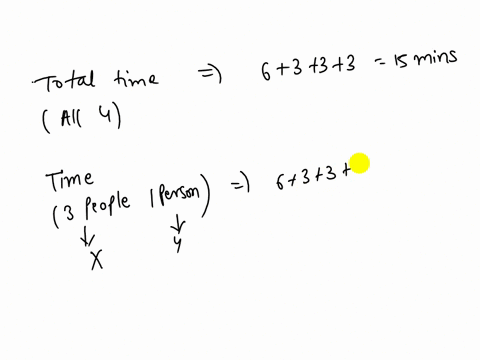 Total time => 6+3+3+3 = 15 mins
(All 4)
Time
(3 people 1 person) => 6+3+3+
X Y